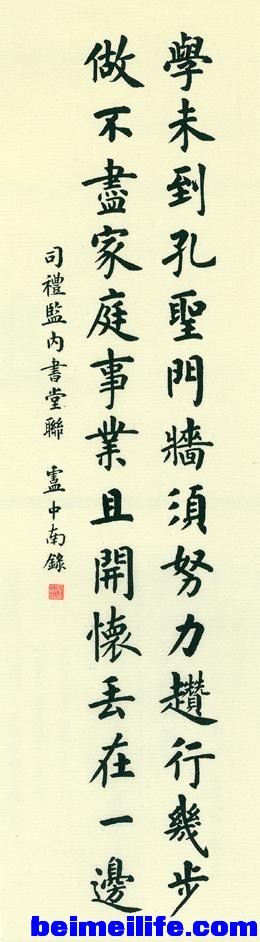 學未到孔聖門牆須努力趲行幾步
做不盡家庭事業且開懷丟在一邊
司禮監內書堂聯 盧中南錄
beimeilife.com